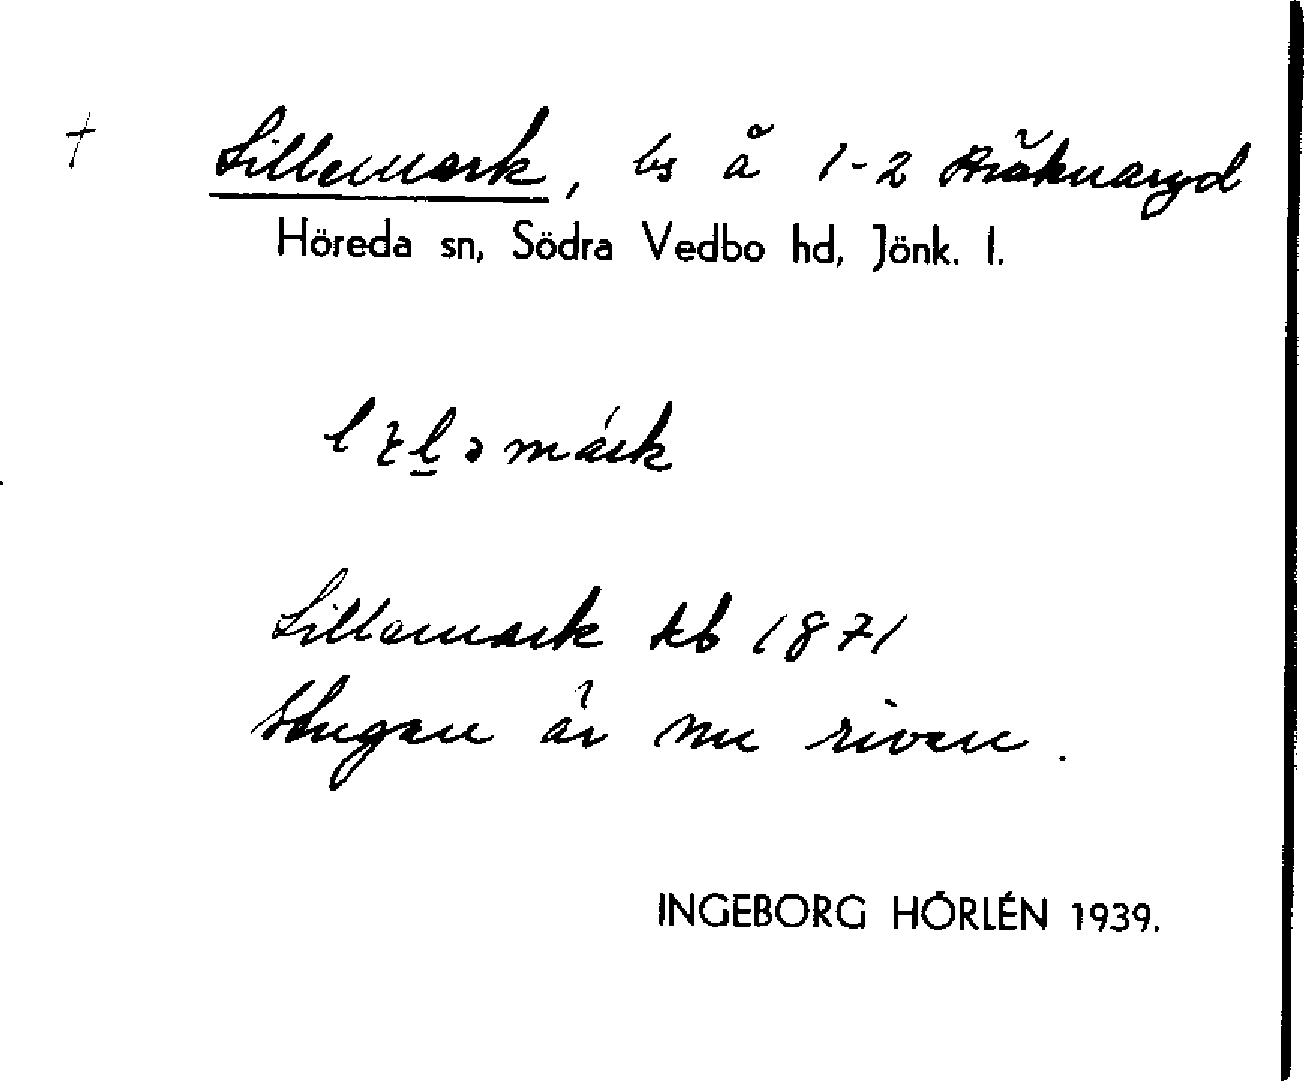 † Lillemark, bs å 1-2 Bräknaryd
Höreda sn, Södra Vedbo hd, Jönk. l.
Lillemark kb 1871
Stugan är nu riven.
INGEBORG HÖRLÉN 1939.